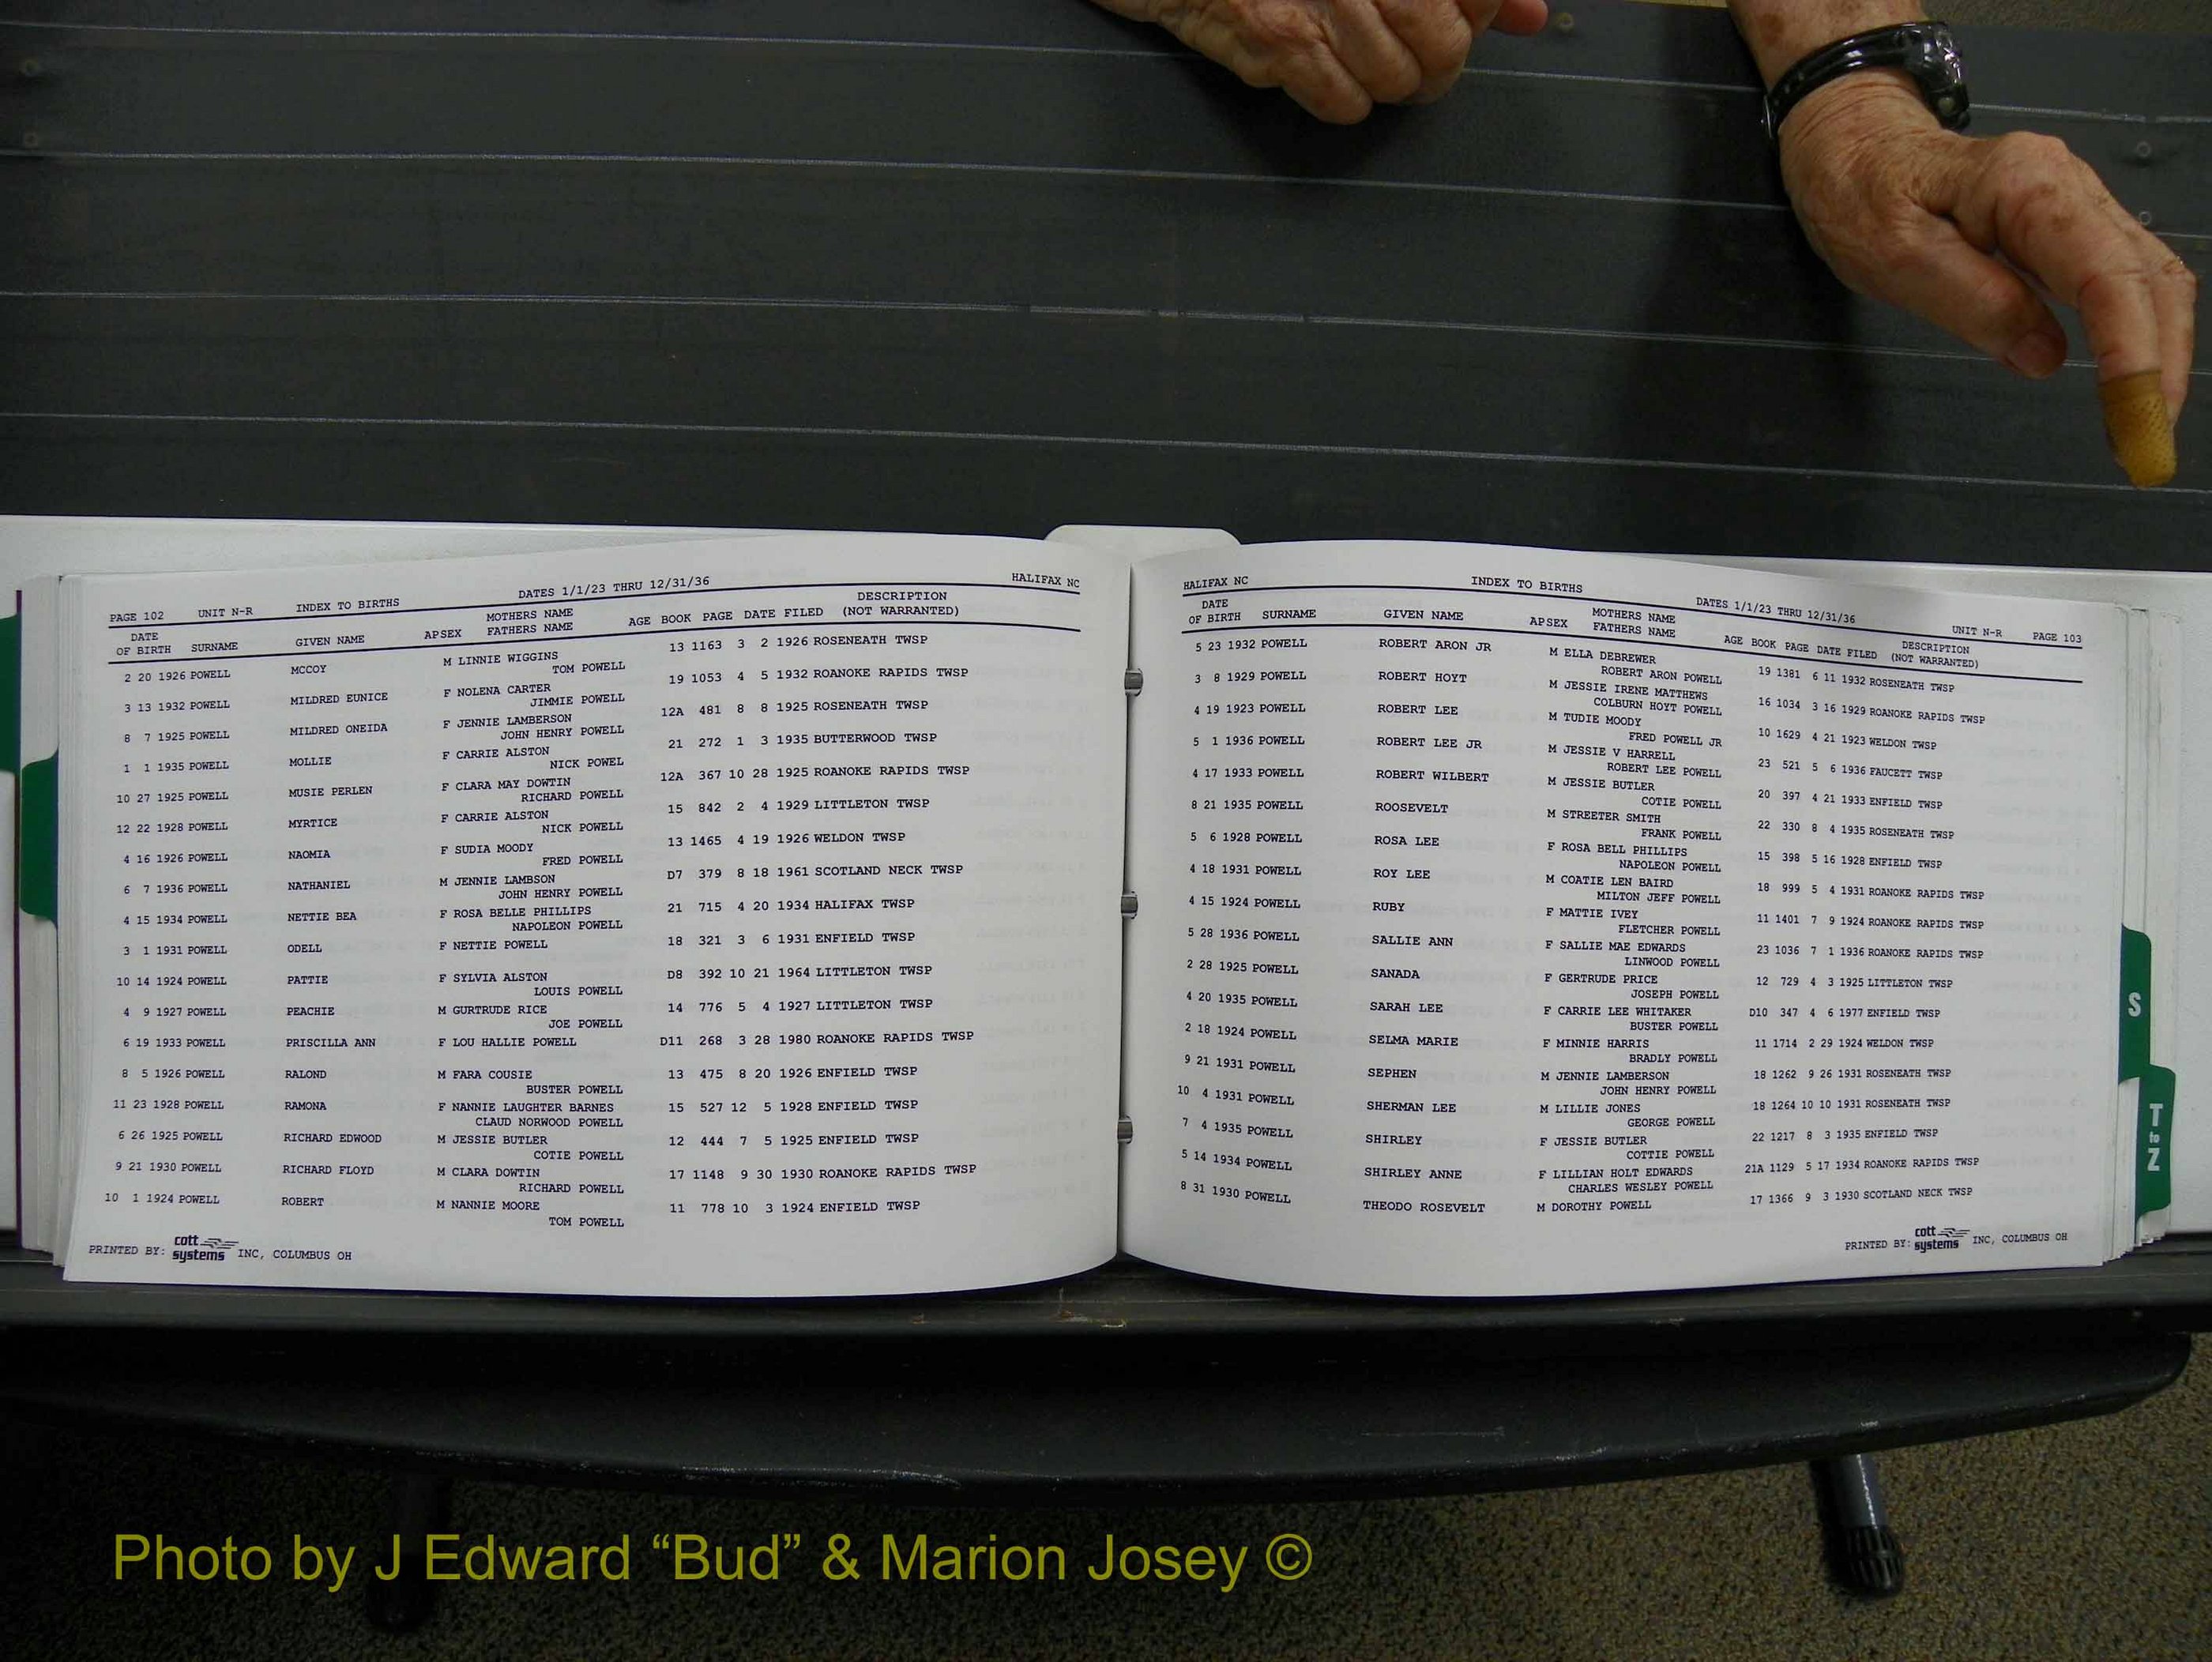 PAGE 102 UNIT N-R INDEX TO BIRTHS DATES 1/1/23 THRU 12/31/36 HALIFAX NC
DATE MOTHERS NAME DESCRIPTION
OF BIRTH SURNAME GIVEN NAME APSEX FATHERS NAME AGE BOOK PAGE DATE FILED (NOT WARRANTED)
2 20 1926 POWELL MCCOY M LINNIE WIGGINS 13 1163 3 2 1926 ROSENEATH TWSP
TOM POWELL
3 13 1932 POWELL MILDRED EUNICE F NOLENA CARTER 19 1053 4 5 1932 ROANOKE RAPIDS TWSP
JIMMIE POWELL
8 7 1925 POWELL MILDRED ONEIDA F JENNIE LAMBERSON 12A 481 8 8 1925 ROSENEATH TWSP
JOHN HENRY POWELL
1 1 1935 POWELL MOLLIE F CARRIE ALSTON 21 272 1 3 1935 BUTTERWOOD TWSP
NICK POWEL
10 27 1925 POWELL MUSIE PERLEN F CLARA MAY DOWTIN 12A 367 10 28 1925 ROANOKE RAPIDS TWSP
RICHARD POWELL
12 22 1928 POWELL MYRTICE F CARRIE ALSTON 15 842 2 4 1929 LITTLETON TWSP
NICK POWELL
4 16 1926 POWELL NAOMIA F SUDIA MOODY 13 1465 4 19 1926 WELDON TWSP
FRED POWELL
6 7 1936 POWELL NATHANIEL M JENNIE LAMBSON D7 379 8 18 1961 SCOTLAND NECK TWSP
JOHN HENRY POWELL
4 15 1934 POWELL NETTIE BEA F ROSA BELLE PHILLIPS 21 715 4 20 1934 HALIFAX TWSP
NAPOLEON POWELL
3 1 1931 POWELL ODELL F NETTIE POWELL 18 321 3 6 1931 ENFIELD TWSP
10 14 1924 POWELL PATTIE F SYLVIA ALSTON D8 392 10 21 1964 LITTLETON TWSP
LOUIS POWELL
4 9 1927 POWELL PEACHIE M GURTRUDE RICE 14 776 5 4 1927 LITTLETON TWSP
JOE POWELL
6 19 1933 POWELL PRISCILLA ANN F LOU HALLIE POWELL D11 268 3 28 1980 ROANOKE RAPIDS TWSP
8 5 1926 POWELL RALOND M FARA COUSIE 13 475 8 20 1926 ENFIELD TWSP
BUSTER POWELL
11 23 1928 POWELL RAMONA F NANNIE LAUGHTER BARNES 15 527 12 5 1928 ENFIELD TWSP
CLAUD NORWOOD POWELL
6 26 1925 POWELL RICHARD EDWOOD M JESSIE BUTLER 12 444 7 5 1925 ENFIELD TWSP
COTIE POWELL
9 21 1930 POWELL RICHARD FLOYD M CLARA DOWTIN 17 1148 9 30 1930 ROANOKE RAPIDS TWSP
RICHARD POWELL
10 1 1924 POWELL ROBERT M NANNIE MOORE 11 778 10 3 1924 ENFIELD TWSP
TOM POWELL
PRINTED BY: cott systems INC, COLUMBUS OH
HALIFAX NC INDEX TO BIRTHS DATES 1/1/23 THRU 12/31/36 UNIT N-R PAGE 103
DATE MOTHERS NAME DESCRIPTION
OF BIRTH SURNAME GIVEN NAME APSEX FATHERS NAME AGE BOOK PAGE DATE FILED (NOT WARRANTED)
5 23 1932 POWELL ROBERT ARON JR M ELLA DEBREWER 19 1381 6 11 1932 ROSENEATH TWSP
ROBERT ARON POWELL
3 8 1929 POWELL ROBERT HOYT M JESSIE IRENE MATTHEWS 16 1034 3 16 1929 ROANOKE RAPIDS TWSP
COLBURN HOYT POWELL
4 19 1923 POWELL ROBERT LEE M TUDIE MOODY 10 1629 4 21 1923 WELDON TWSP
FRED POWELL JR
5 1 1936 POWELL ROBERT LEE JR M JESSIE V HARRELL 23 521 5 6 1936 FAUCETT TWSP
ROBERT LEE POWELL
4 17 1933 POWELL ROBERT WILBERT M JESSIE BUTLER 20 397 4 21 1933 ENFIELD TWSP
COTIE POWELL
8 21 1935 POWELL ROOSEVELT M STREETER SMITH 22 330 8 4 1935 ROSENEATH TWSP
FRANK POWELL
5 6 1928 POWELL ROSA LEE F ROSA BELL PHILLIPS 15 398 5 16 1928 ENFIELD TWSP
NAPOLEON POWELL
4 18 1931 POWELL ROY LEE M COATIE LEN BAIRD 18 999 5 4 1931 ROANOKE RAPIDS TWSP
MILTON JEFF POWELL
4 15 1924 POWELL RUBY F MATTIE IVEY 11 1401 7 9 1924 ROANOKE RAPIDS TWSP
FLETCHER POWELL
5 28 1936 POWELL SALLIE ANN F SALLIE MAE EDWARDS 23 1036 7 1 1936 ROANOKE RAPIDS TWSP
LINWOOD POWELL
2 28 1925 POWELL SANADA F GERTRUDE PRICE 12 729 4 3 1925 LITTLETON TWSP
JOSEPH POWELL
4 20 1935 POWELL SARAH LEE F CARRIE LEE WHITAKER D10 347 4 6 1977 ENFIELD TWSP
BUSTER POWELL
2 18 1924 POWELL SELMA MARIE F MINNIE HARRIS 11 1714 2 29 1924 WELDON TWSP
BRADLY POWELL
9 21 1931 POWELL SEPHEN M JENNIE LAMBERSON 18 1262 9 26 1931 ROSENEATH TWSP
JOHN HENRY POWELL
10 4 1931 POWELL SHERMAN LEE M LILLIE JONES 18 1264 10 10 1931 ROSENEATH TWSP
GEORGE POWELL
7 4 1935 POWELL SHIRLEY F JESSIE BUTLER 22 1217 8 3 1935 ENFIELD TWSP
COTTIE POWELL
5 14 1934 POWELL SHIRLEY ANNE F LILLIAN HOLT EDWARDS 21A 1129 5 17 1934 ROANOKE RAPIDS TWSP
CHARLES WESLEY POWELL
8 31 1930 POWELL THEODO ROSEVELT M DOROTHY POWELL 17 1366 9 3 1930 SCOTLAND NECK TWSP
PRINTED BY: cott systems INC, COLUMBUS OH
S
T to Z
Photo by J Edward “Bud” & Marion Josey ©